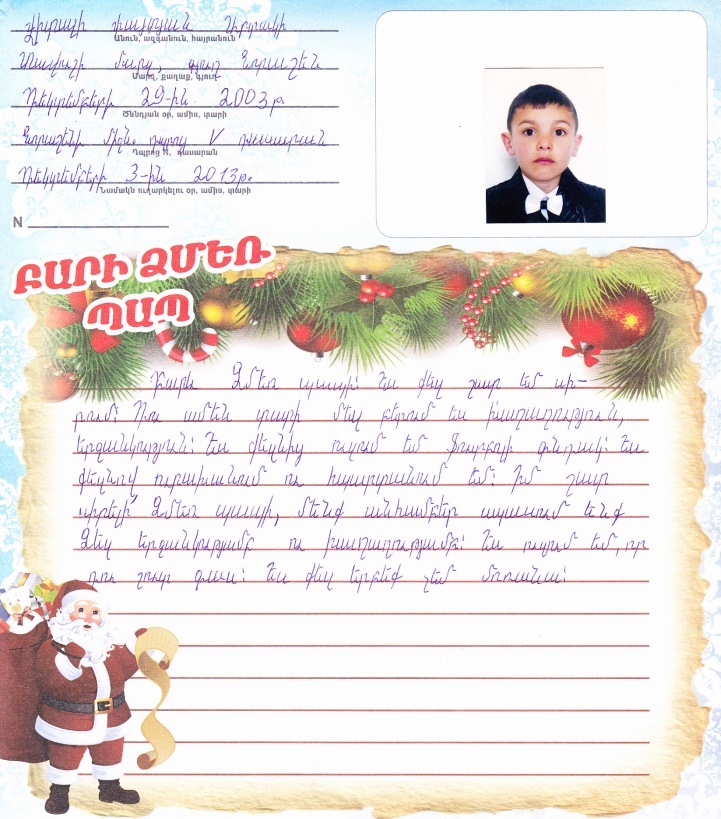 Վիտալի Փայտյան Արտակի
Անուն, ազգանուն, հայրանուն
Տավուշի մարզ, գյուղ Նորաշեն
Մարզ, քաղաք, գյուղ
Դեկտեմբերի 29-ին 2003թ.
Ծննդյան օր, ամիս, տարի
Նորաշենի միջն. դպրոց V դասարան
Դպրոց N, դասարան
Դեկտեմբերի 3-ին 2013թ.
Նամակն ուղարկելու օր, ամիս, տարի
N
ԲԱՐԻ ՁՄԵՌ
ՊԱՊ
Բարև Ձմեռ պապի: Ես քեզ շատ եմ սի-
րում: Դու ամեն տարի մեզ բերում ես խաղաղություն,
երջանկություն: Ես քեզնից ուզում եմ ֆուտբոլի գնդակ: Ես
քեզնով ուրախանում ու հպարտանում եմ: Իմ շատ
սիրելի Ձմեռ պապի, մենք անհամբեր սպասում ենք
Ձեզ երջանկությամբ ու խաղաղությամբ: Ես ուզում եմ, որ
դու շուտ գաս: Ես քեզ երբեք չեմ մոռանա: